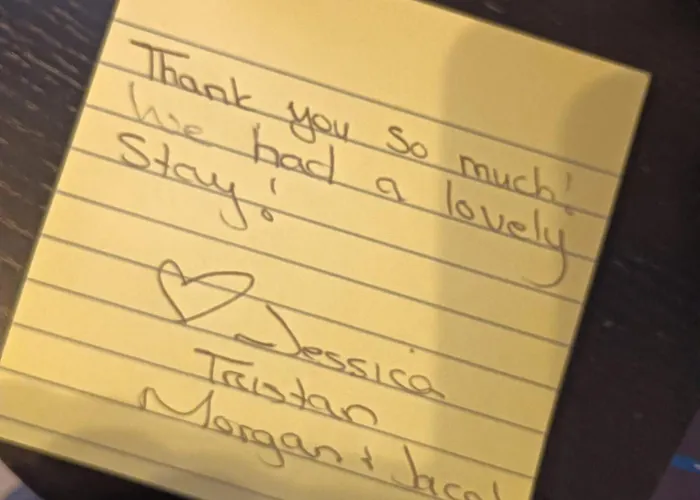 Thank you so much!
We had a lovely
Stay!
♡ Jessica
Tristan
Morgan +